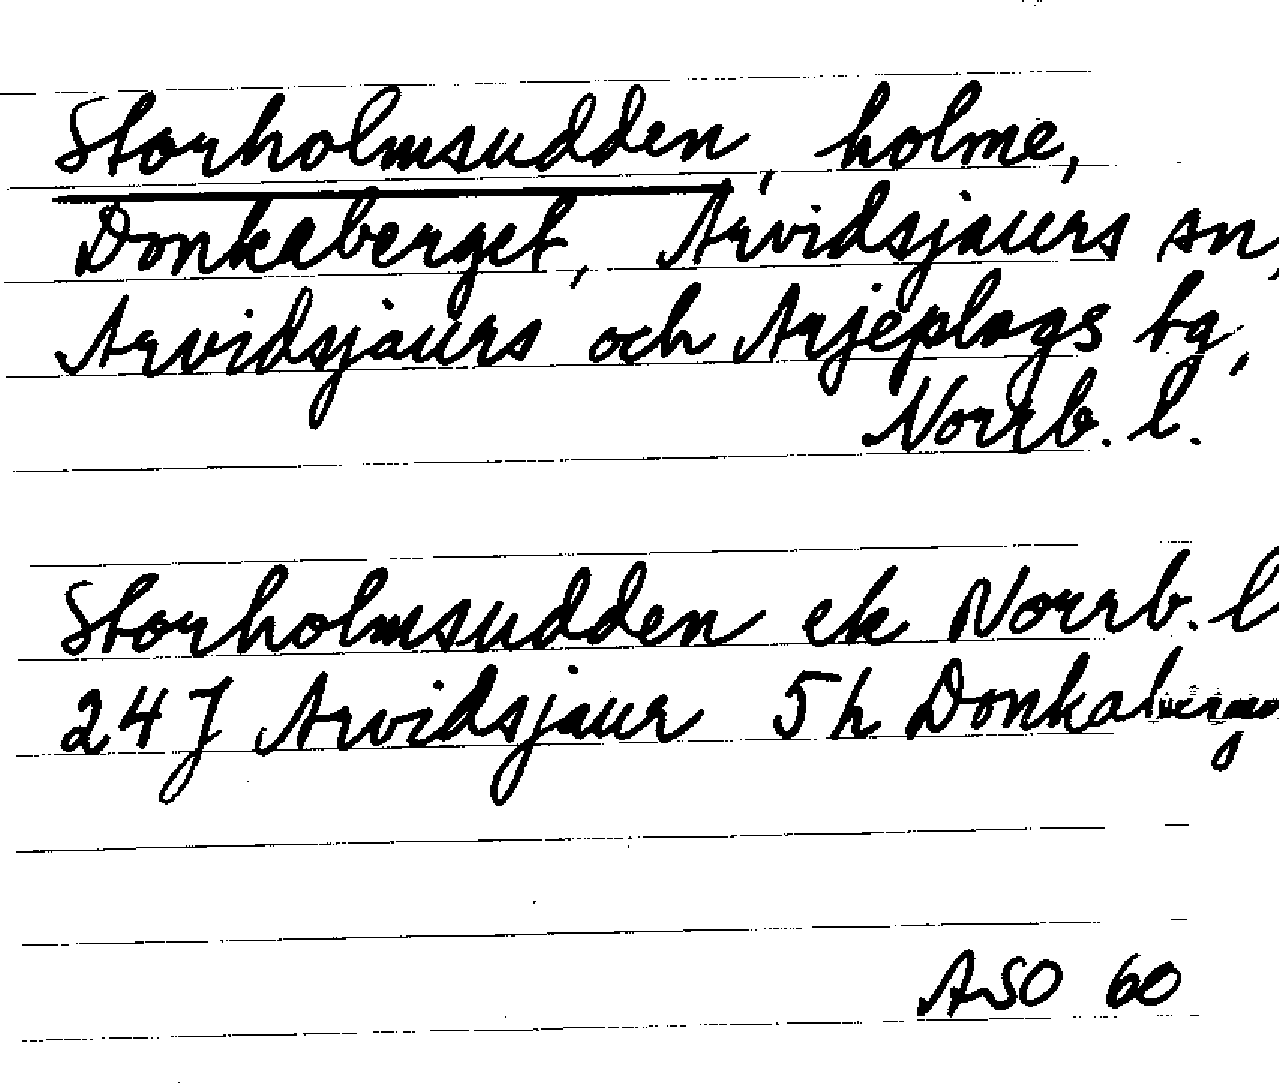 Storholmsudden, holme,
Donkaberget, Arvidsjaurs sn,
Arvidsjaurs och Arjeplogs tg,
Norrb. l.
Storholmsudden ek Norrb. l
24J Arvidsjaur 5h
ASO 60